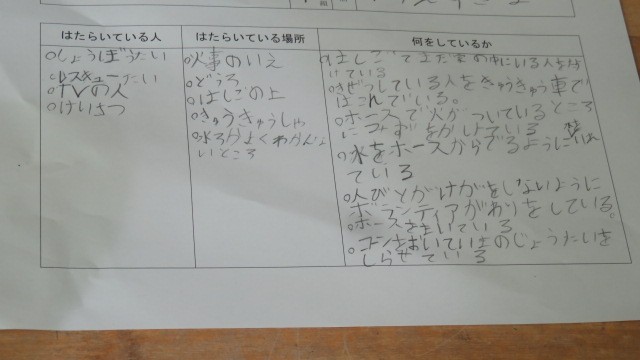 はたらいている人
はたらいている場所
何をしているか
○しょうぼうたい
○レスキューたい
○TVの人
○けいさつ
○火事のいえ
○どうろ
○はしごの上
○きゅうきゅうしゃ
いところ
○はしごで
けている
○きぜつしている人をきゅうきゅう車で
はこんでいる。
○ホースで火がついているところ
に みずをかけている
○水をホースからでるように
ている
○人びとがけがをしないように
ボランティアが をしている。
○ホースを いている
○コーンをおいていまのじょうたいを
しらせている